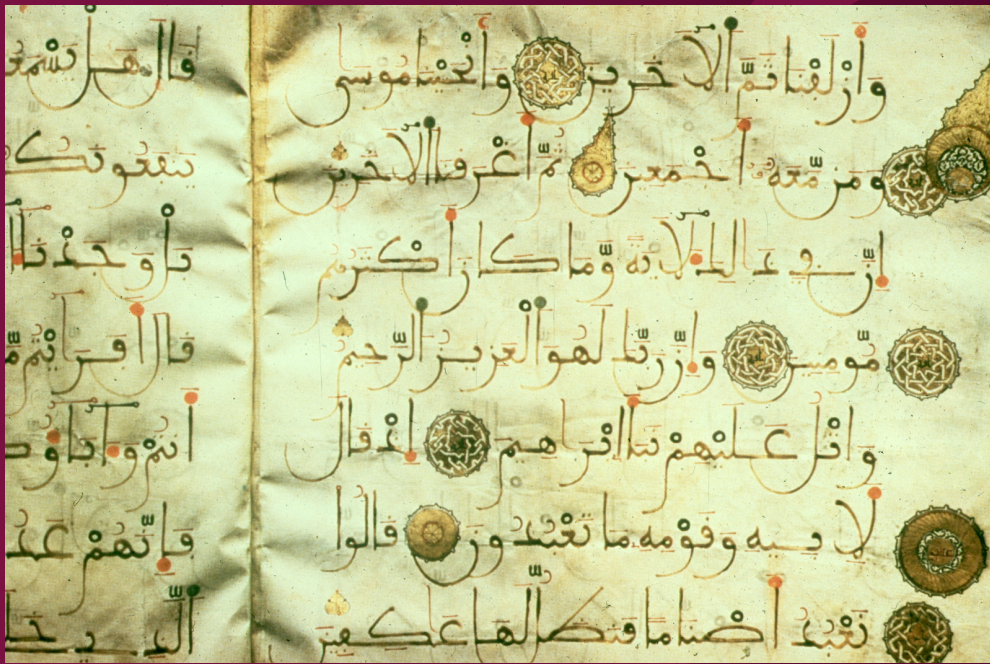 وَأَزْلَفْنَا ثَمَّ ٱلْأَخَرِينَ وَأَنْجَيْنَا مُوسَى
وَمَن مَّعَهُ أَجْمَعِينَ ثُمَّ أَغْرَقْنَا ٱلْأَخَرِينَ
إِنَّ فِي ذَٰلِكَ لَأَيَةً وَّمَا كَانَ أَكْثَرُهُم
مُّؤْمِنِينَ وَإِنَّ رَبَّكَ لَهُوَ ٱلْعَزِيزُ ٱلرَّحِيمُ
وَٱتْلُ عَلَيْهِمْ نَبَأَ ٱبْرَاهِيمَ إِذْ قَالَ
لِأَبِيهِ وَقَوْمِهِ مَا تَعْبُدُونَ قَالُوا
نَعْبُدُ أَصْنَامًا فَنَظَلُّ لَهَا عَٰكِفِينَ
قَالَ هَلْ
وَجَدْنَا
قَالَ أَفَرَأَيْتُم
أَنتُمْ
فَإِنَّهُمْ
ٱلَّذِي